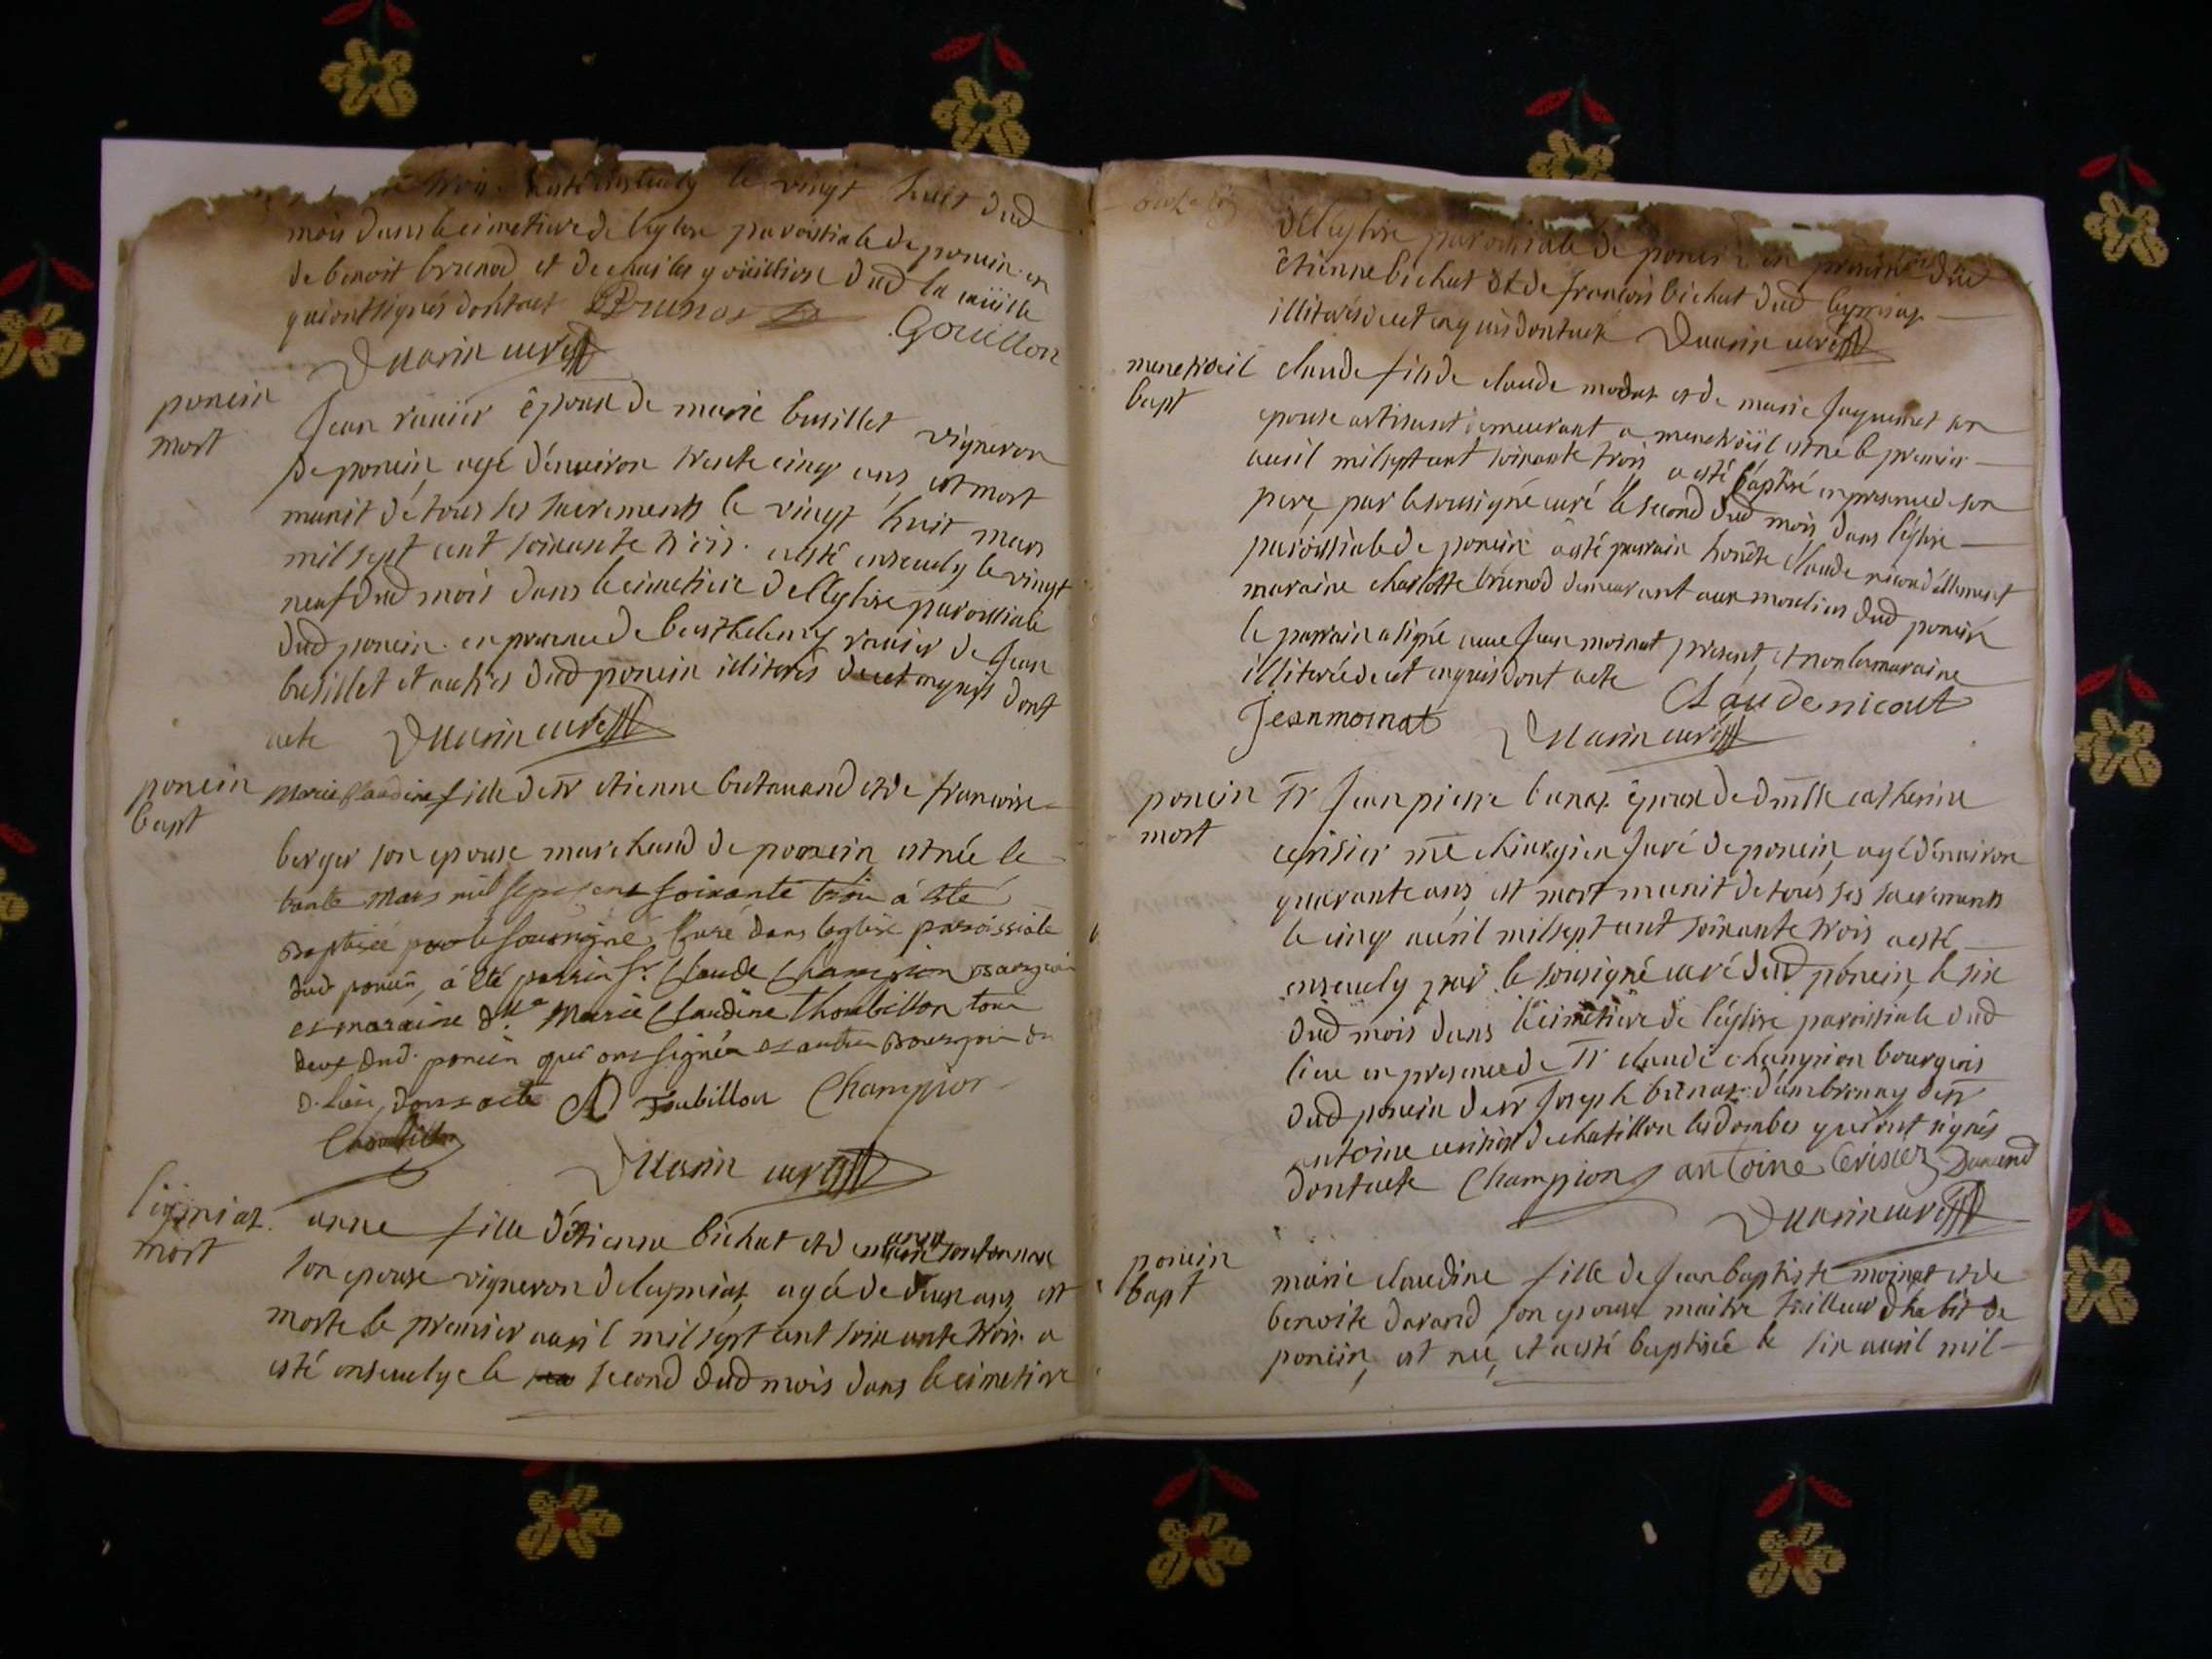 trois a esté ensevely le vingt huit dud
mois dans le cimetiere de leglise paroissiale de poncin en
de benoit brunod et de charles goüillion dud la cuüille
qui ont signés dont act Brunod
Gouillon
curé
poncin
mort
Jean ravier êpoux de marie busillet vigneron
de poncin, agé d'environ trente cinq ans, est mort
munit de tous ses sacrements le vingt huit mars
mil sept cent soixante trois. a esté ensevely le vingt
neuf dud mois dans le cimetiere de l'eglise paroissiale
dud poncin. en presence de barthelemy ravier de Jean
busillet et autres dud poncin illiterés de ce enquis dont
acte curé
poncin
bapt
Marie Claudine fille de sr etienne butavand et de francoise
berger son epouse marchand de poncin, est née le
trante mars mil sept cent soixante trois á eté
Baptisée par le soussigné Curé dans leglise paroissiale
dud poncin, á eté parrin Sr. Claude Champion Bourgois
et maraine dlle Marie Claudine Thoubillon tous
deux dud. poncin qui ont signéz et autre Bourgois du
d. Lieu, dont acte Toubillon Champion
curé
mort
anne fille d'étienne bichat et de
son epouse vigneron de leymiat, agée de deux ans, est
morte le premier avril mil sept cent soixante trois. a
esté ensevelye le second dud mois dans le cimetiere
de l'eglise paroissiale de poncin en presence dud
êtienne bichat et de francois bichat dud leymiat
illiterés de ce enquis dont acte curé
menetrüil
bapt
claude fils de claude modas et de marie Jaquemet son
epouse artisant demeurant a menetrüil est né le premier
avril mil sept cent soixante trois a esté baptisé en presence de son
pere, par le sousigné curé le second dud mois dans l'église
paroissiale de poncin a esté parrain honête Claude nicoud allemant
maraine charlotte brunod demeurant aux moulins dud poncin
le parrain a signé avec Jean moinat present, et non la maraine
illiterée de ce enquis dont acte Claude nicout
Jean moinat curé
poncin
mort
Sr Jean pierre bunaz êpoux de dmlle catherine
cerisier me chirurgien Juré de poncin, agé d'environ
quarante ans, est mort munit de tous ses sacrements
le cinq avril mil sept cent soixante trois a esté
ensevely par le sousigné curé dud poncin, le six
dud mois dans le cimetiere de l'église paroissiale dud
lieu en presence de Sr claude champion bourgeois
dud poncin de sr Joseph bunaz d'ambronay de sr
antoine cerisier de chatillon les dombes qui ont signés
dont acte Champion antoine Cerisier
curé
poncin
bapt
marie claudine fille de Jean baptiste moinat et de
benoite durand son epouse maitre tailleur d'habit de
poncin, est née, et a esté baptisée le six avril mil